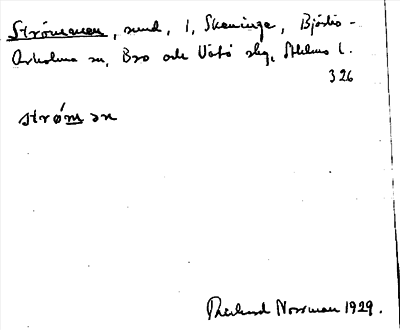 Strömmen, sund, 1, Skeninge, Björkö-
Arholma sn, Bro och Vätö skg, Sthlms l.
326
strǿmən
Rickard Norrman 1929.